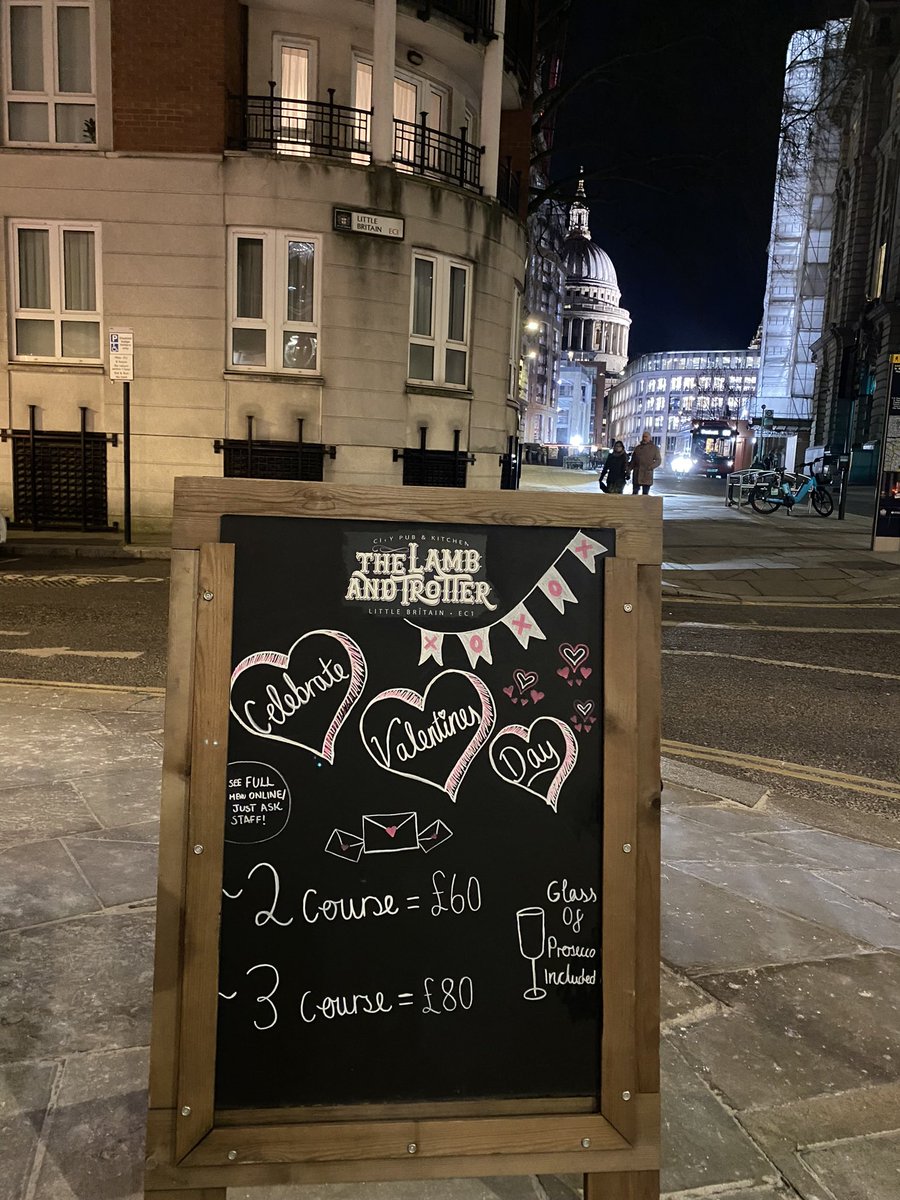 LITTLE
BRITAIN EC1
P
CITY PUB & KITCHEN
THE LAMB
AND TROTTER
LITTLE BRITAIN • EC1
XOXOX
Celebrate
Valentines
Day
SEE FULL
MENU ONLINE/
JUST ASK
STAFF!
~2 Course = £60
~3 Course = £80
Glass
Of
Prosecco
Included